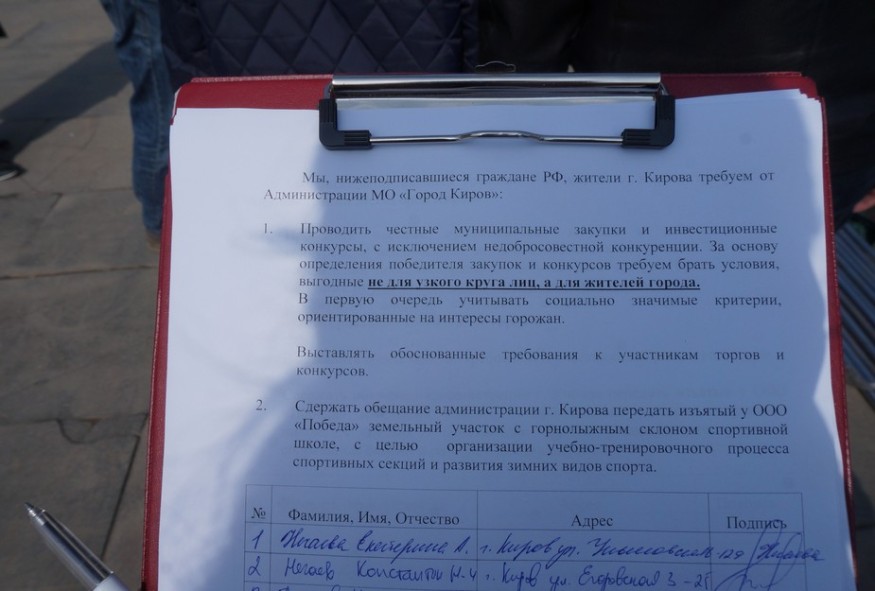 Мы, нижеподписавшиеся граждане РФ, жители г. Кирова требуем от
Администрации МО «Город Киров»:
1. Проводить честные муниципальные закупки и инвестиционные
конкурсы, с исключением недобросовестной конкуренции. За основу
определения победителя закупок и конкурсов требуем брать условия,
выгодные не для узкого круга лиц, а для жителей города.
В первую очередь учитывать социально значимые критерии,
ориентированные на интересы горожан.
Выставлять обоснованные требования к участникам торгов и
конкурсов.
2. Сдержать обещание администрации г. Кирова передать изъятый у ООО
«Победа» земельный участок с горнолыжным склоном спортивной
школе, с целью организации учебно-тренировочного процесса
спортивных секций и развития зимних видов спорта.
№ Фамилия, Имя, Отчество Адрес Подпись
1 Екатерина А. г. Киров ул.
2 Негаев Константин г. Киров ул.